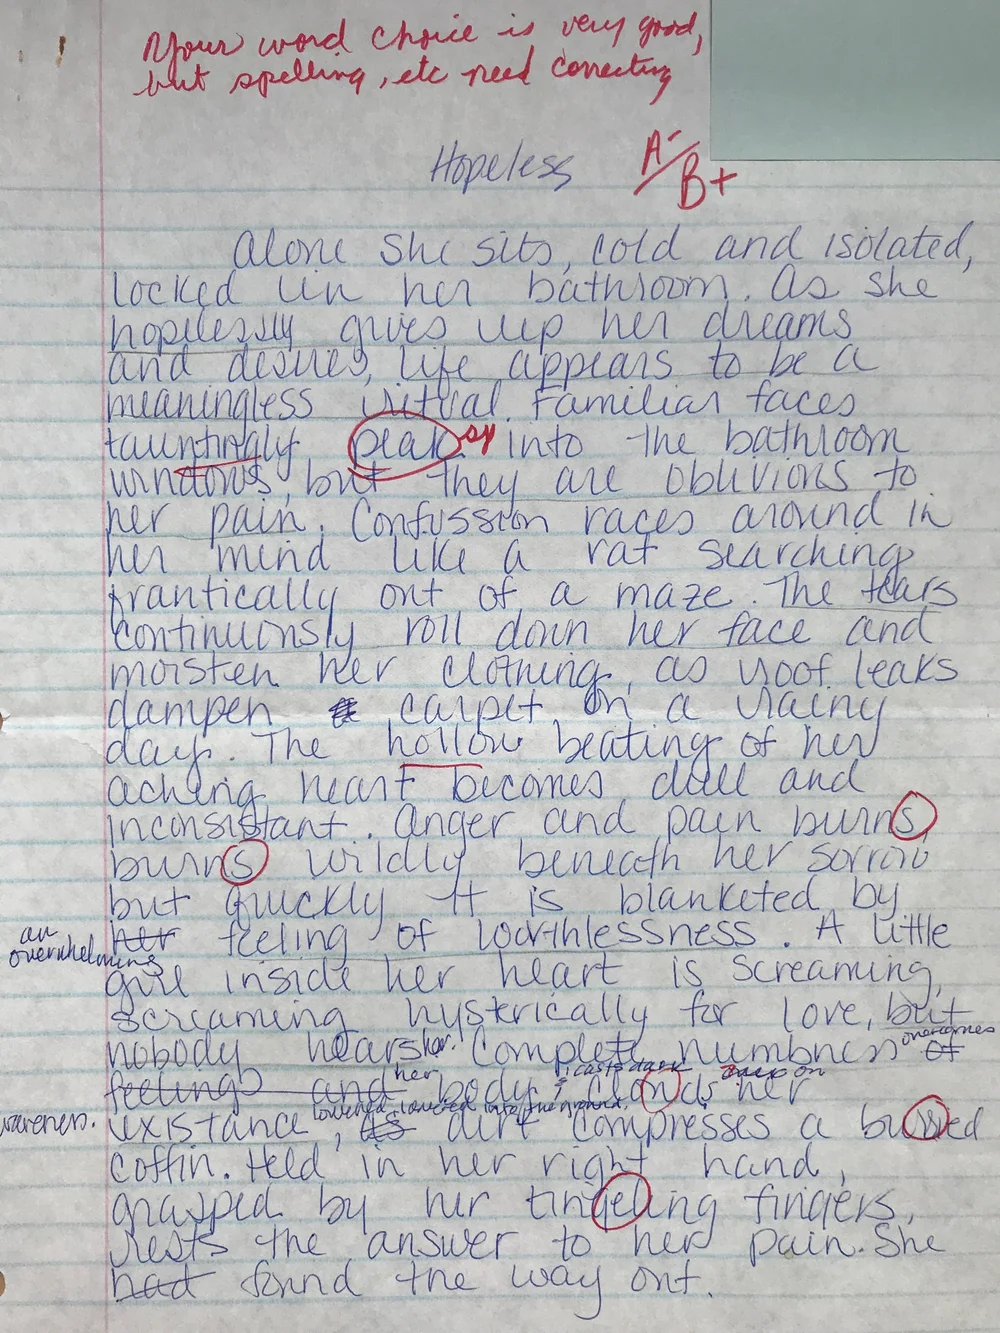 Your word choice is very good,
but spelling, etc need correcting
Hopeless
A-/B+
Alone she sits, cold and isolated,
locked in her bathroom. As she
hopelessly gives up her dreams
and desires, life appears to be a
meaningless ritual. Familiar faces
tauntingly peak sp into the bathroom
windows, but they are oblivious to
her pain. Confussion races around in
her mind like a rat searching
frantically out of a maze. The tears
continuously roll down her face and
moisten her clothing, as roof leaks
dampen carpet on a rainy
day. The hollow beating of her
aching heart becomes dull and
inconsistant. Anger and pain burns
burns wildly beneath her sorrow
but quickly it is blanketed by
an
overwhelming
her feeling of worthlessness. A little
girl inside her heart is screaming,
screaming hysterically for love, but
nobody hears her. Complete numbness overcomes of
feelings and her body, casts dark clouds on her
awareness.
existance, lowered into the ground, as dirt compresses a burred
coffin. Held in her right hand,
grasped by her tingeling fingers,
rests the answer to her pain. She
had found the way out.